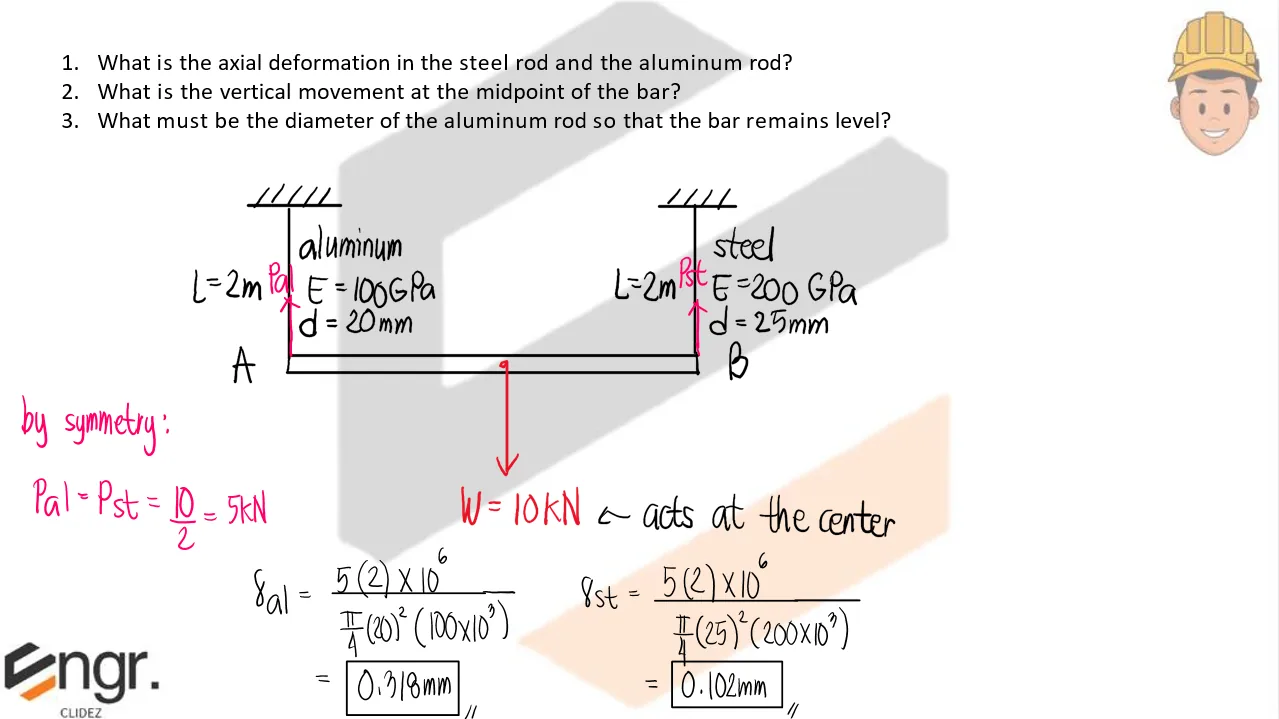 1. What is the axial deformation in the steel rod and the aluminum rod?
2. What is the vertical movement at the midpoint of the bar?
3. What must be the diameter of the aluminum rod so that the bar remains level?
aluminum
L=2m Pal E=100GPa
d=20mm
steel
L=2m Pst E=200 GPa
d=25mm
A
B
by symmetry:
Pal = Pst = 10/2 = 5kN
W=10KN ← acts at the center
δal = 5(2)×10⁶ / π/4(20)²(100×10³)
= 0.318mm //
δst = 5(2)×10⁶ / π/4(25)²(200×10³)
= 0.102mm //
engr.
CLIDEZ